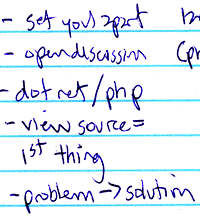 - set you apart
- open discussion (pr
- dot net/php
- view source =
1st thing
- problem -> solution